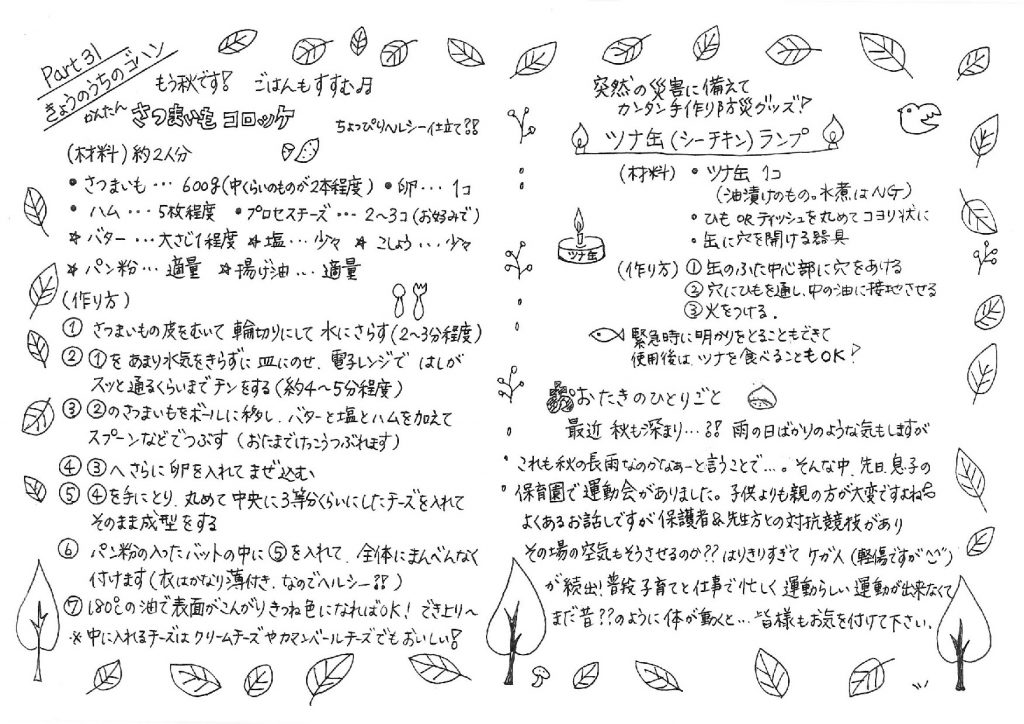 Part 31
きょうのうちのゴハン
もう秋です! ごはんもすすむ♪
かんたん さつまいも コロッケ
ちょっぴりヘルシー仕立て??
(材料) 約2人分
• さつまいも … 600g(中くらいのものが2本程度) • 卵 … 1コ
• ハム … 5枚程度 • プロセスチーズ … 2〜3コ(お好みで)
☆ バター … 大さじ1程度 ☆ 塩 … 少々 ☆ こしょう … 少々
☆ パン粉 … 適量 ☆ 揚げ油 … 適量
(作り方)
① さつまいもの皮をむいて 輪切りにして 水にさらす(2〜3分程度)
② ①を あまり水気をきらずに 皿にのせ、電子レンジで はしが
スッと通るくらいまでチンをする(約4〜5分程度)
③ ②のさつまいもをボールに移し、バターと塩とハムを加えて
スプーンなどでつぶす (おたまでけっこうつぶれます)
④ ③へさらに卵を入れて まぜ込む
⑤ ④を手にとり、丸めて中央に3等分くらいにしたチーズを入れて
そのまま成型をする
⑥ パン粉の入ったバットの中に⑤を入れて、全体にまんべんなく
付けます(衣はかなり薄付き、なのでヘルシー??)
⑦ 180℃の油で表面がこんがりきつね色になればOK! でき上り〜
※ 中に入れるチーズは クリームチーズやカマンベールチーズでもおいしい!
突然の災害に備えて
カンタン手作り防災グッズ!
ツナ缶(シーチキン)ランプ
(材料) • ツナ缶 1コ
(油漬けのもの。水煮はNG)
• ひも OR ティッシュを丸めてコヨリ状に
• 缶に穴を開ける器具
ツナ缶
(作り方) ① 缶のふた中心部に穴をあける
② 穴にひもを通し、中の油に接地させる
③ 火をつける.
緊急時に明かりをとることもできて
使用後は、ツナを食べることもOK!
おたきのひとりごと
最近 秋も深まり…?? 雨の日ばかりのような気もしますが
これも秋の長雨なのかなぁーと言うことで…。そんな中、先日、息子の
保育園で運動会がありました。子供よりも親の方が大変ですよね
よくあるお話しですが保護者&先生方との対抗競技があり
その場の空気もそうさせるのか?? はりきりすぎて ケガ人(軽傷ですが^^;)
が続出! 普段子育てと仕事で忙しく運動らしい運動が出来なくて
まだ昔??のように体が動くと… 皆様もお気を付けて下さい.